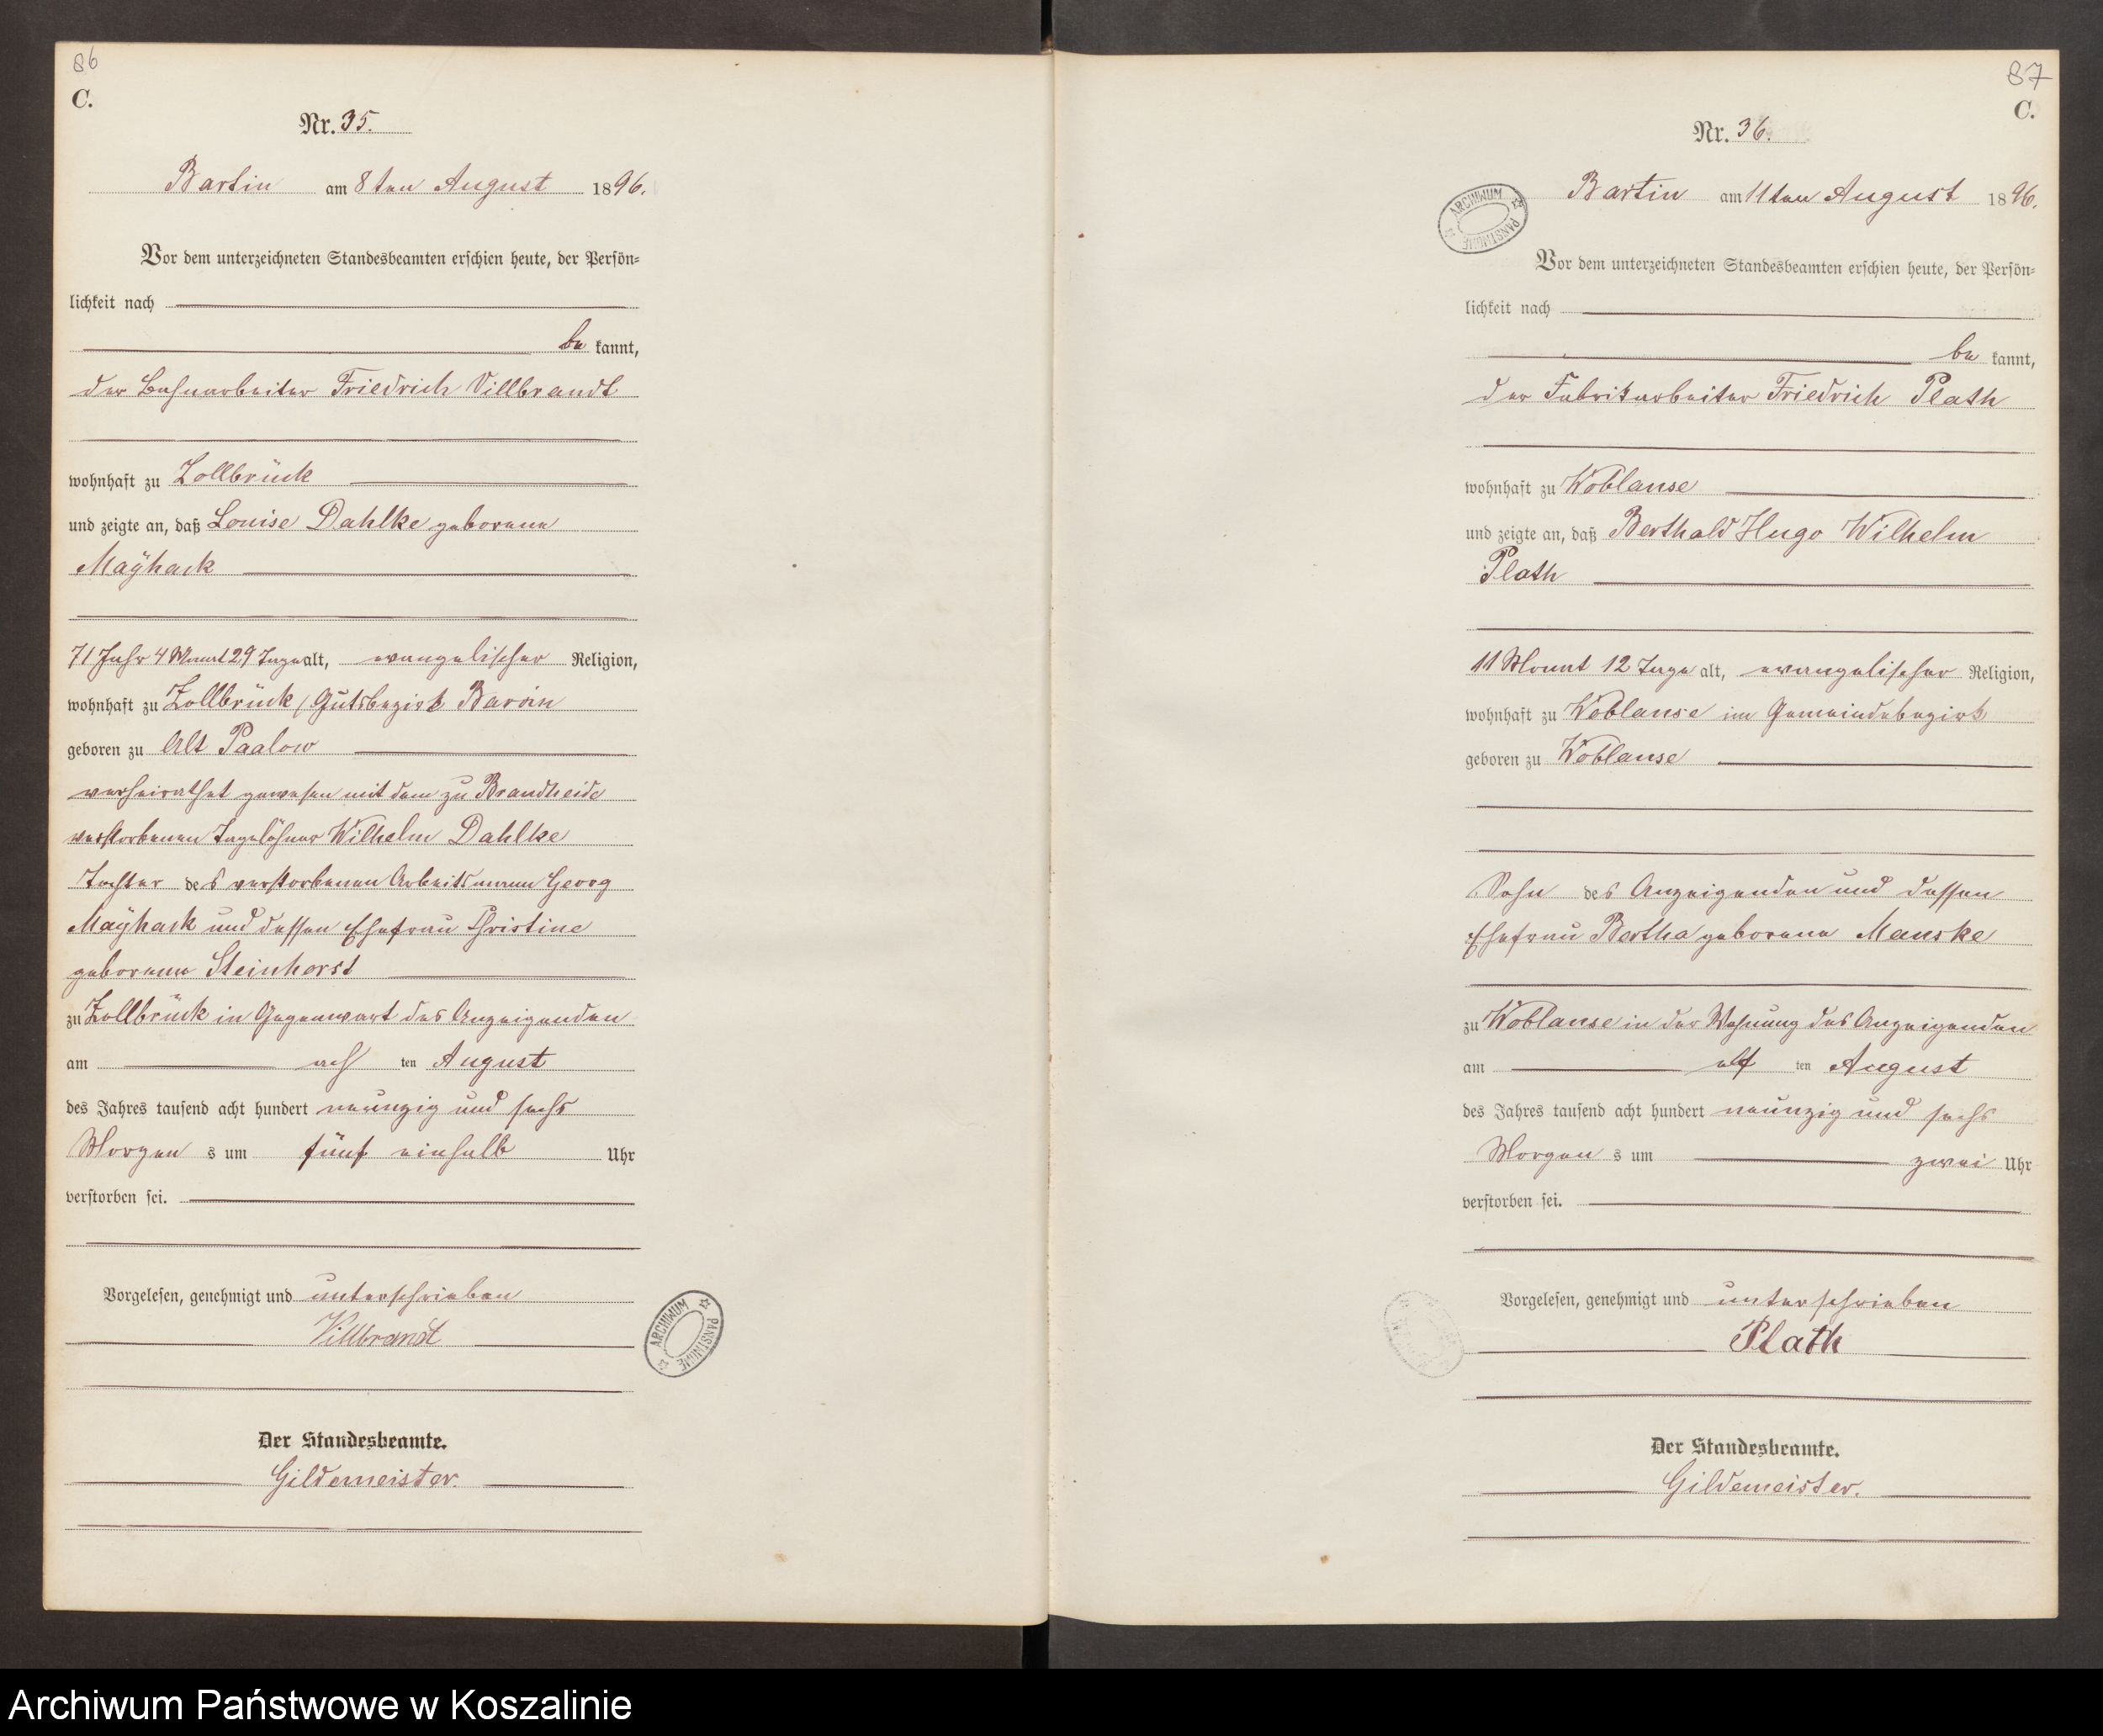 86
C.
Nr. 35.
Bartin am 8ten August 1896.
Vor dem unterzeichneten Standesbeamten erschien heute, der Persön-
lichkeit nach
be kannt,
der Bahnarbeiter Friedrich Villbrandt
wohnhaft zu Zollbrück
und zeigte an, daß Louise Dahlke geborene
Maÿhack
71 Jahr 4 Monat 29 Tage alt, evangelischer Religion,
wohnhaft zu Zollbrück, Gutsbezirk Barvin
geboren zu Alt Paalow
verheirathet gewesen mit dem zu Brandheide
verstorbenen Tagelöhner Wilhelm Dahlke
Tochter des verstorbenen Arbeitsmann Georg
Maÿhack und dessen Ehefrau Christine
geborene Steinhorst
zu Zollbrück in Gegenwart des Anzeigenden
am ach ten August
des Jahres tausend acht hundert neunzig und sechs
Morgen s um fünf einhalb Uhr
verstorben sei.
Vorgelesen, genehmigt und unterschrieben
Villbrandt
Der Standesbeamte.
Gildemeister.
ARCHIWUM PAŃSTWOWE
87
C.
Nr. 36.
Bartin am 11ten August 1896.
ARCHIWUM PAŃSTWOWE
Vor dem unterzeichneten Standesbeamten erschien heute, der Persön-
lichkeit nach
be kannt,
der Fabrikarbeiter Friedrich Plath
wohnhaft zu Woblanse
und zeigte an, daß Berthald Hugo Wilhelm
Plath
11 Monat 12 Tage alt, evangelischer Religion,
wohnhaft zu Woblanse im Gemeindebezirk
geboren zu Woblanse
Sohn des Anzeigenden und dessen
Ehefrau Bertha geborene Manske
zu Woblanse in der Wohnung des Anzeigenden
am elf ten August
des Jahres tausend acht hundert neunzig und sechs
Morgen s um zwei Uhr
verstorben sei.
Vorgelesen, genehmigt und unterschrieben
Plath
Der Standesbeamte.
Gildemeister.
Archiwum Państwowe w Koszalinie